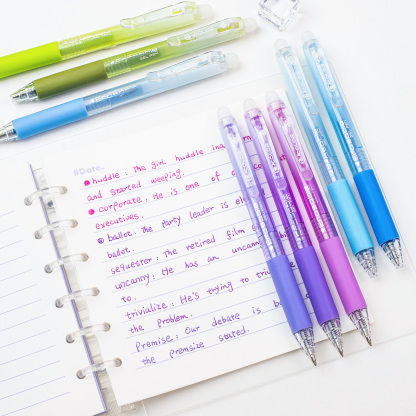 #Date.
huddle : The girl huddle in a
and started weeping.
corporate : He is one of
executives.
ballot : the party leader is
ballot.
sequester : The retired film
uncanny : He has an uncann
to.
trivialize : He's trying to trivi
the problem.
Premise : Our debate is b
the premsise stated.